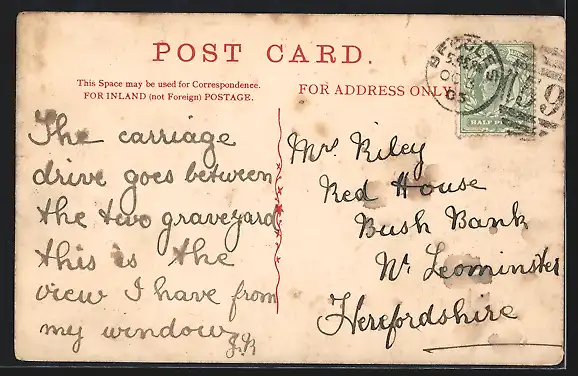 POST CARD.
This Space may be used for Correspondence.
FOR INLAND (not Foreign) POSTAGE.
The carriage
drive goes between
the two graveyard
this is the
view I have from
my window
FOR ADDRESS ONLY
Mrs Riley
Red House
Bush Bank
Nr Leominster
Herefordshire
BECCLES